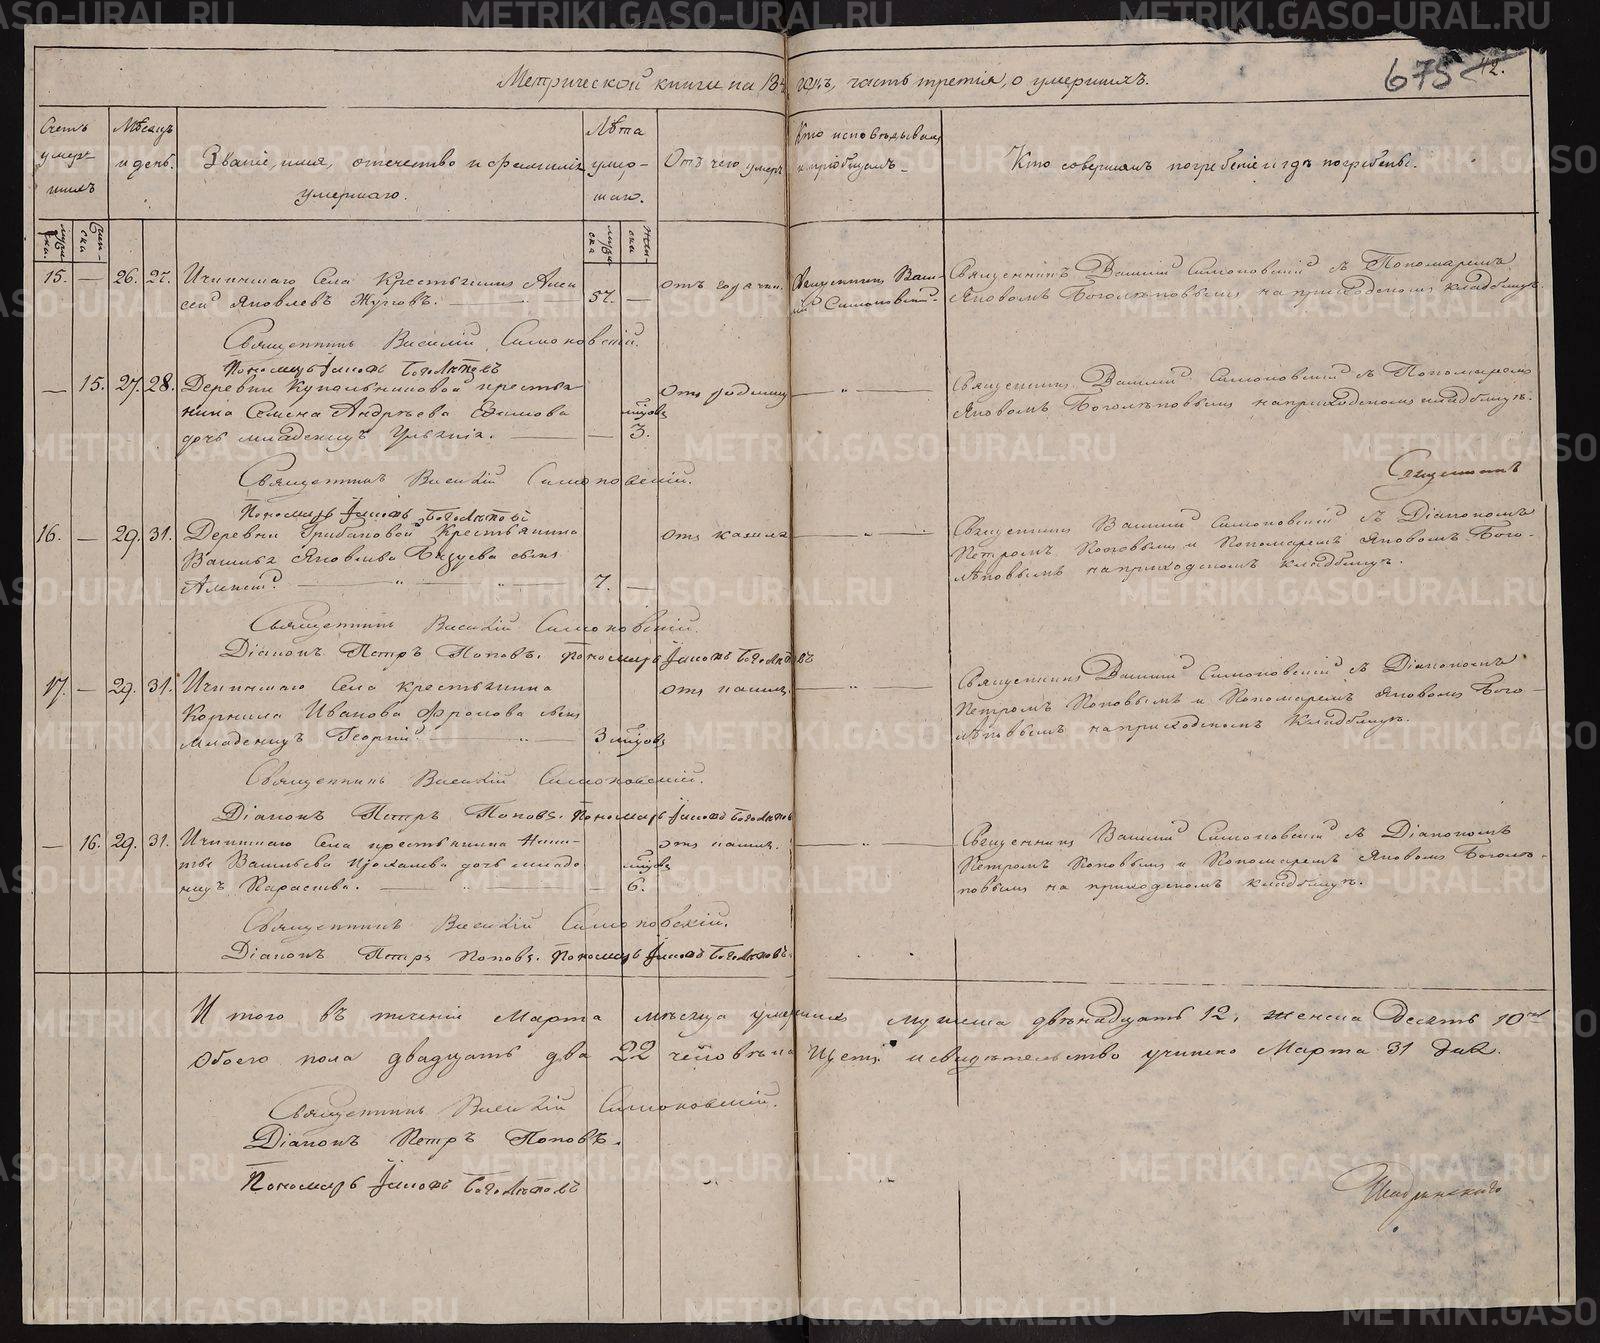 Метрической книги на 18 годъ, часть третія, о умершихъ.
675
42.
Счетъ умер-шихъ
Мѣсяцъ и день.
Званіе, имя, отечество и фамилія умершаго.
Лѣта умер-шаго.
Отъ чего умеръ
Кто исповѣдывалъ и пріобщалъ.
Кто совершалъ погребеніе и гдѣ погребены.
15. — 26. 27. Ичкинскаго Села Крестьянинъ Алек
сей Яковлевъ Жуковъ. — 57. —
отъ горячки.
Священникъ Васи-
лій Симоновскій.
Священникъ Василій Симоновскій съ Пономаремъ
Яковомъ Боголѣповымъ на приходскомъ кладбищѣ.
Священникъ Василій Симоновскій.
Пономарь Іаковъ Боголѣповъ
— 15. 27. 28. Деревни Купальниковой крестья
нина Семена Андрѣева Екимова
дочь младенецъ Ульянія. — — мѣсцовъ 3.
отъ родимцу
— „ —
Священникъ Василій Симоновскій съ Пономаремъ
Яковомъ Боголѣповымъ на приходскомъ кладбищѣ.
Священникъ Василій Симоновскій.
Священникъ
Пономарь Іаковъ Боголѣповъ
16. — 29. 31. Деревни Грибановой Крестьянина
Василья Яковлева сынъ
Алексій. — „ — „ — 7. —
отъ кашля
— „ —
Священникъ Василій Симоновскій съ Діакономъ
Петромъ Поповымъ и Пономаремъ Яковомъ Бого-
лѣповымъ на приходскомъ кладбищѣ.
Священникъ Василій Симоновскій.
Діаконъ Петръ Поповъ. Пономарь Іаковъ Боголѣповъ
17. — 29. 31. Ичкинскаго Села крестьянина
Корнила Иванова Фролова сынъ
младенецъ Георгій. — „ — 3 мѣсцовъ
отъ кашля.
— „ —
Священникъ Василій Симоновскій съ Діакономъ
Петромъ Поповымъ и Пономаремъ Яковомъ Бого-
лѣповымъ на приходскомъ Кладбищѣ.
Священникъ Василій Симоновскій.
Діаконъ Петръ Поповъ. Пономарь Іаковъ Боголѣповъ
— 16. 29. 31. Ичкинскаго Села крестьянина Ники-
ты Васильева дочь младе
нецъ Параскева. — — мѣсцовъ 6.
отъ кашля.
— „ —
Священникъ Василій Симоновскій съ Діакономъ
Петромъ Поповымъ и Пономаремъ Яковомъ Боголѣ-
повымъ на приходскомъ кладбищѣ.
Священникъ Василій Симоновскій.
Діаконъ Петръ Поповъ. Пономарь Іаковъ Боголѣповъ.
И того въ теченіи Марта мѣсяца умершихъ мужеска двѣнадцать 12, женска Десять 10
обоего пола двадцать два 22 человѣка Щетъ и свидѣтельство учинено Марта 31 дня.
Священникъ Василій Симоновскій.
Діаконъ Петръ Поповъ.
Пономарь Іаковъ Боголѣповъ
Шадринскаго
METRIKI.GASO-URAL.RU